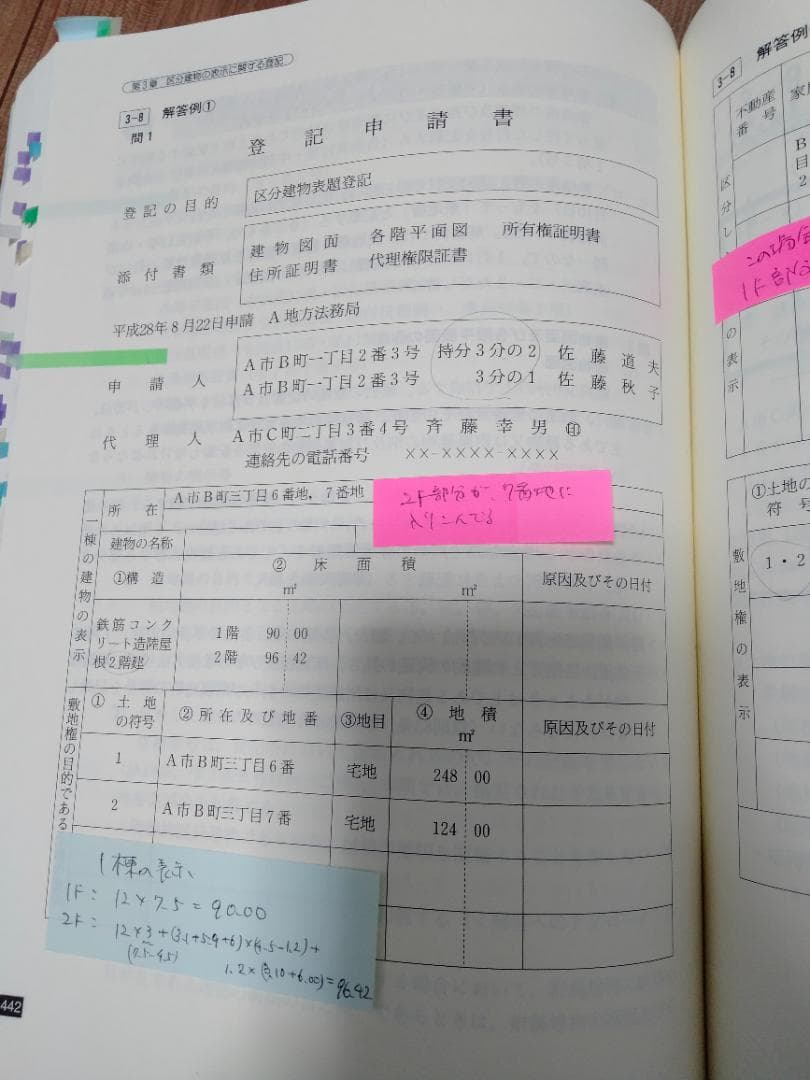 第3章 区分建物の表示に関する登記
3-8 解答例①
問1
登記申請書
登記の目的 区分建物表題登記
添付書類 建物図面 各階平面図 所有権証明書
住所証明書 代理権限証書
平成28年8月22日申請 A地方法務局
申請人 A市B町一丁目2番3号 持分3分の2 佐藤道夫
A市B町一丁目2番3号 3分の1 佐藤秋子
代理人 A市C町二丁目3番4号 斉藤幸男 ㊞
連絡先の電話番号 ××-××××-××××
一棟の建物の表示
所在 A市B町三丁目6番地，7番地
2F部分が、7番地に
入りこんでる
建物の名称
①構造 ②床面積 ㎡ ㎡ 原因及びその日付
鉄筋コンク
リート造陸屋
根2階建
1階 90 00
2階 96 42
敷地権の目的である
①土地の符号 ②所在及び地番 ③地目 ④地積 ㎡ 原因及びその日付
1 A市B町三丁目6番 宅地 248 00
2 A市B町三丁目7番 宅地 124 00
1棟の表示
1F: 12×7.5=90.00
2F: 12×3+(3.1+5.9+6)×(4.5-1.2)+
(7.5-4.5)
1.2×(3.10+6.00)=96.42
442
3-8 解答例
不動産
番号
区分し
の表示
この場合
1F部分
①土地の
符号
1・2
敷地権の表示